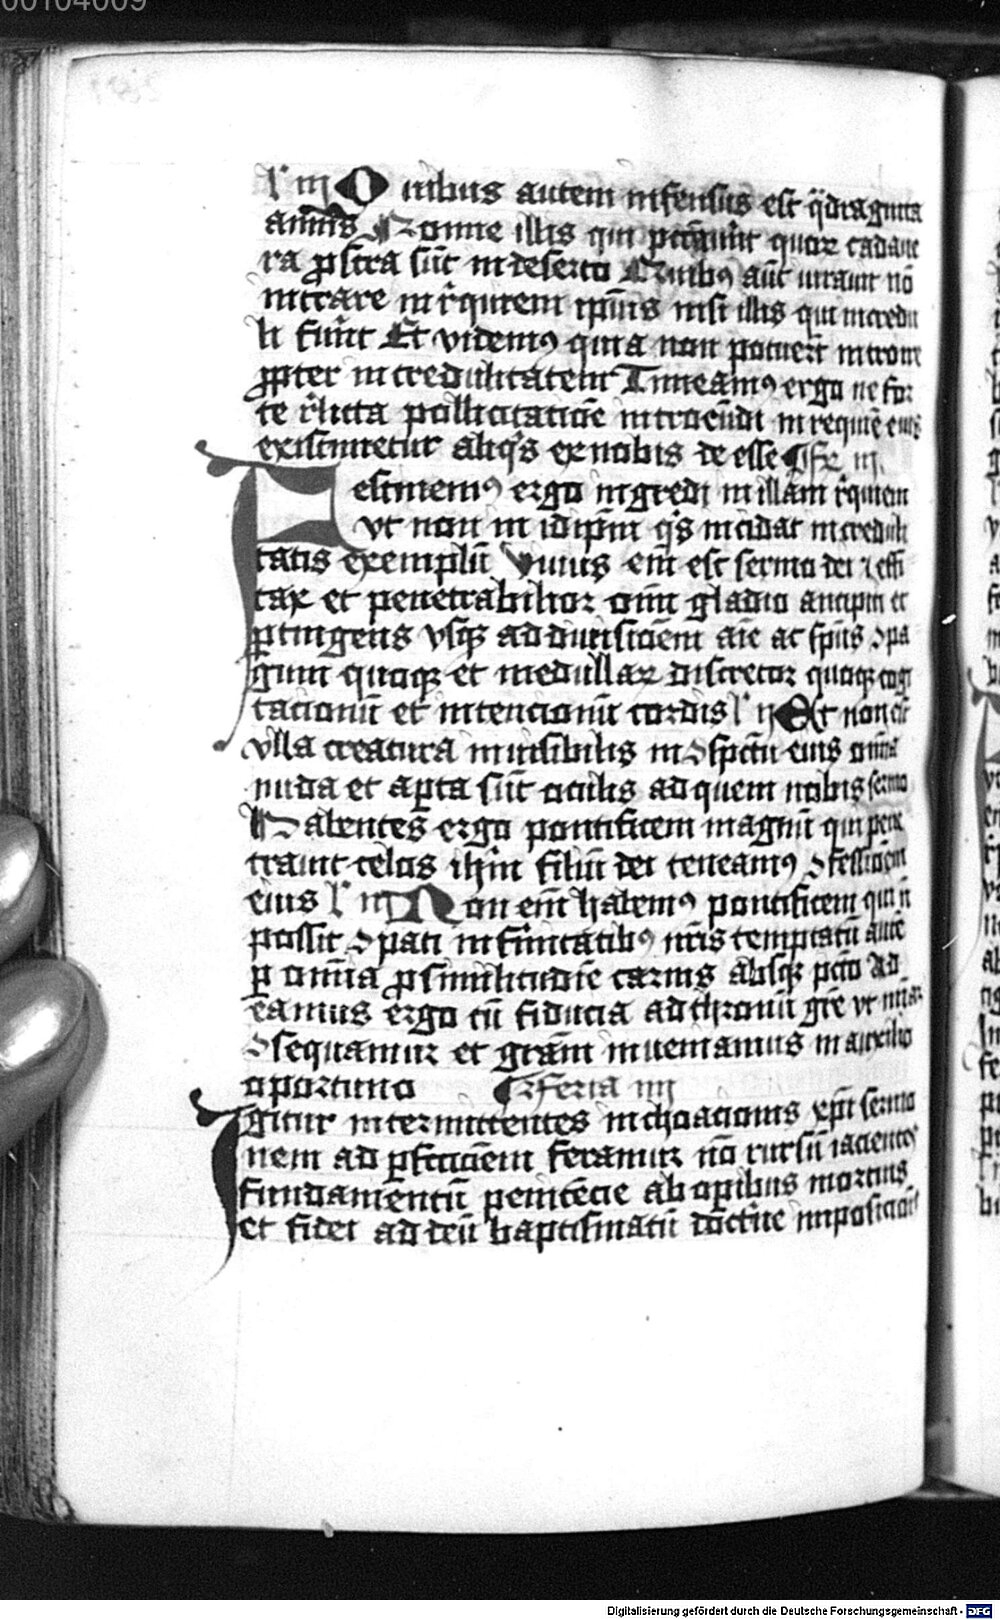 00104009
l' iij Quibus autem infensus est q̈draginta
annis Nonne illis qui pccauēr̄t quor̄ cadaue
ra ꝓstra sūt in deserto Quibꝫ aūt iurauit nō
intrare in r̄quiem ipīus nisi illis qui incredu
li fūnt Et videmꝰ quia non potuer̄t introire
ꝓpter incredulitatem Timeamꝰ ergo ne for
te r̄licta pollicitatiōe introeūdi in requiē eius
existimetur aliq̄s ex nobis de esse Fr iij.
Festinemꝰ ergo ingredi in illam r̄quiem
vt non in idīpm q̄s incidat incredulitatis
tatis exemplū Viuus em̄ est sermo dei ⁊ effi
cax et penetrabilior om̄i gladio ancipiti et
ꝑtingens vsqꝫ ad diuisiōem aīe ac sp̄us ꝯpa
gum quoqꝫ et medullar̄ discretor quoqꝫ cogi
tacionū et intencionū cordis l' ij Et non est
vlla creatura inuisibilis in ꝯspc̄tu eius om̄ia
nuda et aꝑta sūt oculis ad quem nobis sermo
Habentes ergo pontificem magnū qui pene
trauit celos ihm̄ filiū dei teneamꝰ ꝯfessiōem
eius l' iij Non em̄ habemꝰ pontificem qui nō
possit ꝯpati infirmitatibꝰ nr̄is temptatū autē
ꝑ om̄ia ꝓ similitudīe carnis absqꝫ pctō Ad
eamus ergo cū fiducia ad thronū gr̄e vt miāꝫ
ꝯsequamur et gr̄am inueniamus in auxilio
oportuno Feria iiij
Igitur intermittentes inchoacionis xp̄i sermo
nem ad ꝑfectiōem feramur nō rursū iacientes
fundamentū penitēcie ab oꝑibus mortuis
et fidei ad deū baptismatū doctrīe imposiciōis
Digitalisierung gefördert durch die Deutsche Forschungsgemeinschaft - DFG